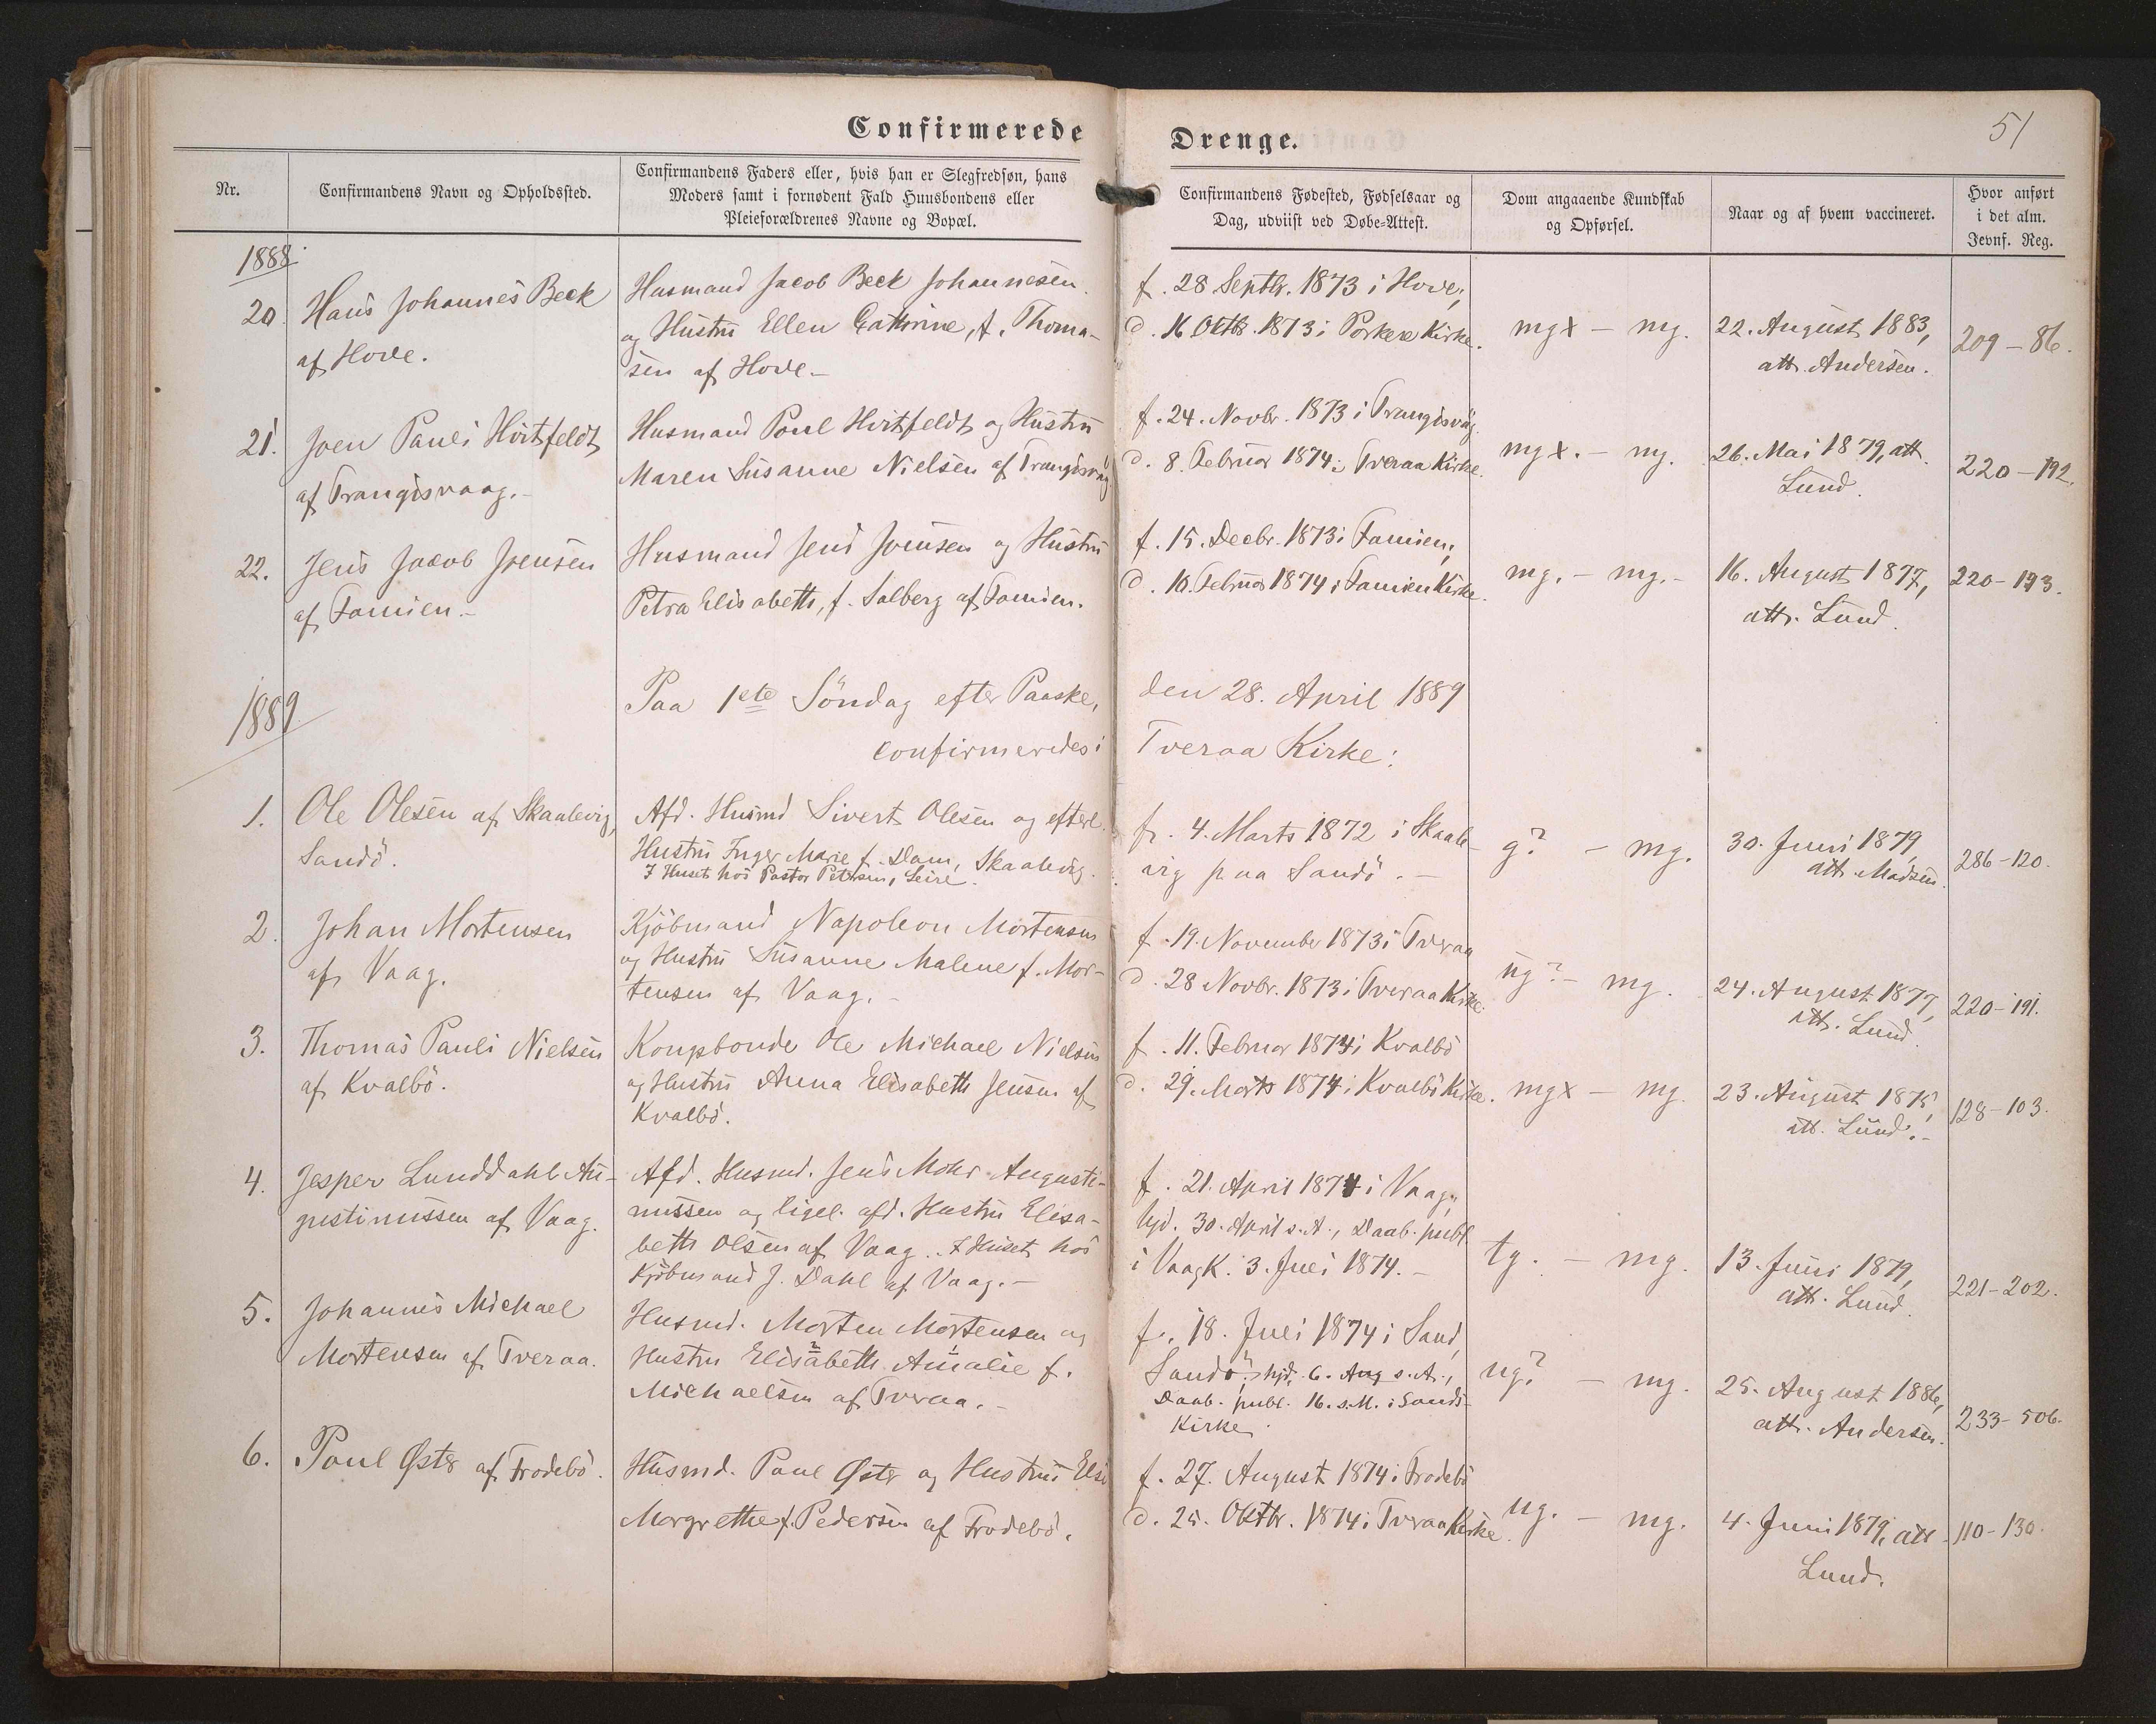 Confirmerede
Drenge.
51
Nr.
Confirmandens Navn og Opholdssted.
Confirmandens Faders eller, hvis han er Slegfredsøn, hans
Moders samt i fornødent Fald Huusbondens eller
Pleieforældrenes Navne og Bopæl.
Confirmandens Fødested, Fødselsaar og
Dag, udviist ved Døbe-Attest.
Dom angaaende Kundskab
og Opførsel.
Naar og af hvem vaccineret.
Hvor anført
i det alm.
Jevnf. Reg.
1888.
20.
Hans Johannes Beck
af Hove.
Husmand Jacob Beck Johannesen
og Hustru Ellen Cathrine, f. Thoma-
sen af Hove.-
f. 28 Septbr. 1873 i Hove,
d. 16 Oktbr. 1873 i Porkere Kirke.
mgx - mg.
22. August 1883,
att. Andersen.
209-86.
21.
Joen Pauli Hvitfeldt
af Trangisvaag.-
Husmand Poul Hvitfeldt og Hustru
Maren Susanne Nielsen af Trangisvaag.
f. 24. Novbr. 1873 i Trangisvaag.
d. 8. Februar 1874 i Tveraa Kirke.
mgx. - mg.
26. Mai 1879, att.
Lund.
220-192.
22.
Jens Jacob Joensen
af Famien.-
Husmand Jens Joensen og Hustru
Petra Elisabeth, f. Salberg af Famien.
f. 15. Decbr. 1873 i Famien,
d. 10. Februar 1874 i Famien Kirke.
mg. - mg.-
16. August 1877,
att. Lund.
220-193.
1889.
Paa 1ste Söndag efter Paaske,
confirmeredes i
den 28. April 1889
Tveraa Kirke:
1.
Ole Olesen af Skaalevig,
Sandö.
Afd. Husmd Sivert Olesen og efterl.
Hustru Inger Marie f. Dam, Skaalevig.
I Huset hos Pastor Petersen,
f. 4. Marts 1872 i Skaale-
vig paa Sandö.-
g? - mg.
30. Juni 1879,
att. Madsen.
286-120.
2.
Johan Mortensen
af Vaag.
Kjöbmand Napoleon Mortensen
og Hustru Susanne Malene f. Mor-
tensen af Vaag.-
f. 19. November 1873 i Tveraa
d. 28 Novbr. 1873 i Tveraa Kirke.
ug? - mg.
24. August 1877,
att. Lund.
220-191.
3.
Thomas Pauli Nielsen
af Kvalbö.
Kongsbonde Ole Michael Nielsen
og Hustru Anna Elisabeth Jensen af
Kvalbö.
f. 11. Februar 1874 i Kvalbö
d. 29. Marts 1874 i Kvalbö Kirke.
mgx - mg.
23. August 1875,
att. Lund.-
128-103.
4.
Jesper Lunddahl Au-
gustinussen af Vaag.
Afd. Husmd. Jens Mohr Augusti-
nussen og ligel. afd. Hustru Elisa-
beth Olsen af Vaag. I Huset hos
Kjöbmand J. Dahl af Vaag.-
f. 21. April 1874 i Vaag,
hjd. 30. April s.A., Daab. publ.
i Vaag K. 3. Juli 1874.-
tg. - mg.
13. Juni 1879,
att. Lund.
221-202.
5.
Johannes Michael
Mortensen af Tveraa.
Husmd. Morten Mortensen og
Hustru Elisabeth Amalie f.
Michaelsen af Tveraa.-
f. 18. Juli 1874 i Sand,
Sandö, hjd. 6. Aug s.A.,
Daab. publ. 16. s.M. i Sands
Kirke.
ug? - mg.
25. August 1886,
att. Andersen.
233-506.
6.
Poul Øster af Frodebö.
Husmd. Poul Øster og Hustru Else
Margrethe f. Pedersen af Frodebö.
f. 27. August 1874 i Frodebö
d. 25. Oktbr. 1874 i Tveraa Kirke.
ug. - mg.
4. Juni 1879, att.
Lund.
110-130.